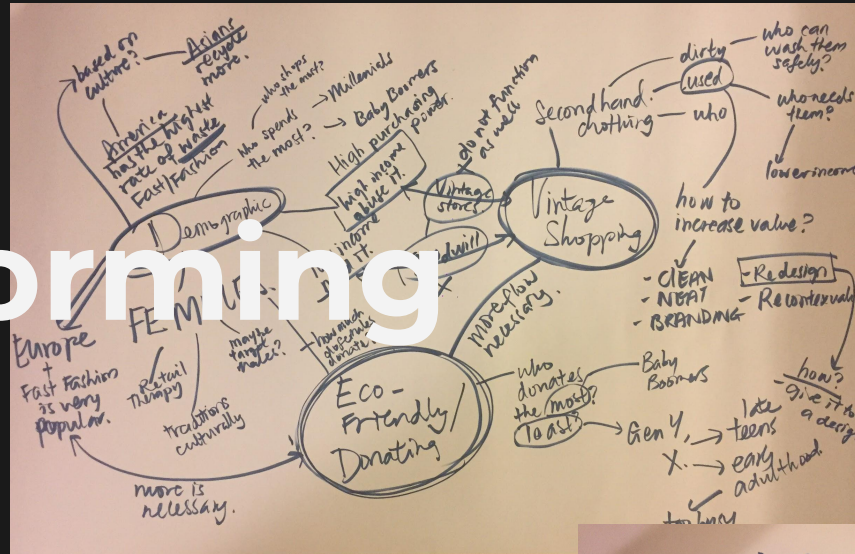 based on
culture?
Asians
recycle
more.
America
has the highest
rate of waste
Fast/Fashion
who shops
the most?
who spends
the most?
Millenials
Baby Boomers
High purchasing
power.
high income
abuse it.
do not function
as well
Vintage
stores
Demographic
Vintage
Shopping
Secondhand
clothing
dirty
used
who
who can
wash them
safely?
who needs
them?
lower income
how to
increase value?
- CLEAN
- NEAT
- BRANDING
- Redesign
- Recontextual
how?
- give it to
a design
orming
Europe
+
Fast Fashion
is very
popular.
FEM
Retail
Therapy
traditions
culturally
maybe
target
males?
how much
donate?
more is
necessary.
more flow
necessary.
Eco-
Friendly/
Donating
who
donates
the most?
least?
Baby
Boomers
Gen Y,
X.
late
teens
early
adulthood
too busy